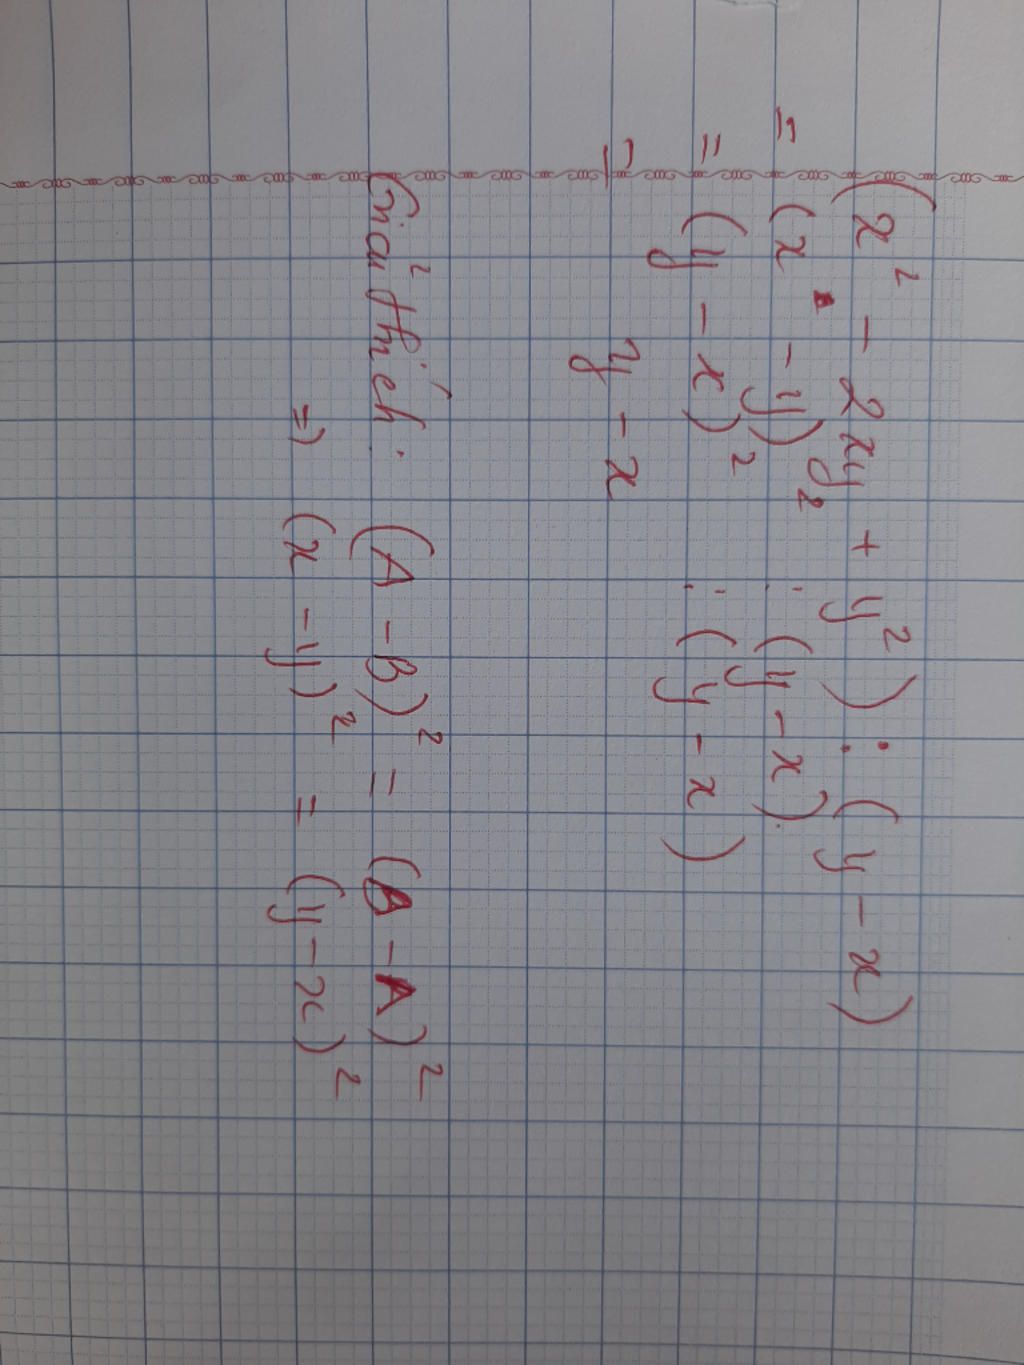 (x² - 2xy + y²) : (y - x)
= (x - y)² : (y - x).
= (y - x)² : (y - x)
= y - x
Giải thích: (A - B)² = (B - A)²
=> (x - y)² = (y - x)²